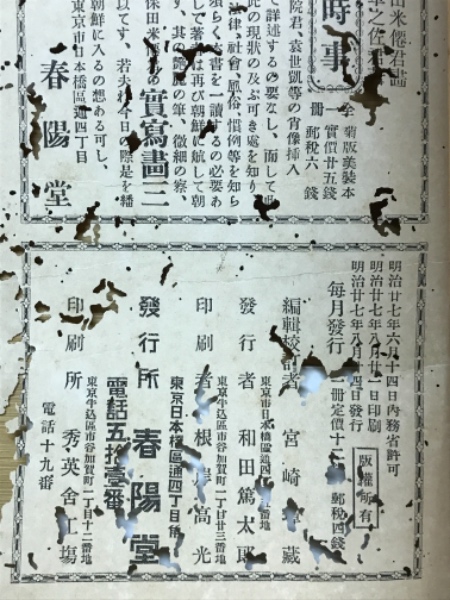 田米僊君畵
時事
全一冊
菊版美裝本
實價廿五錢
郵稅六錢
院君、袁世凱等の肖像挿入
て詳述するの要なし、而して
の現狀の及ぶ可き處を知り
法律、社會、風俗、慣例等を知ら
須らく本書を一讀するの必要あ
して著者は再び朝鮮に航して朝
す、其の艶麗の筆、微細の察、
保田米僊の實寫畵三
以てす、若夫れ今日の際是を繙
朝鮮に入るの想ある可し、
東京市日本橋區通四丁目
春陽堂
明治廿七年六月十四日內務省許可
明治廿七年八月廿一日印刷
明治廿七年八月廿四日發行
版權所有
每月發行 一冊定價十二 郵稅四錢
編輯校訂者 宮崎 藏
東京市日本橋區通四 番地
發行者 和田篤太郎
東京市牛込區市谷加賀町二丁目廿三番地
印刷者 根岸高光
東京日本橋區通四丁目角
發行所 春陽堂
電話五拾壹番
東京市牛込區市谷加賀町一丁目十二番地
印刷所 秀英舍工塲
電話十九番